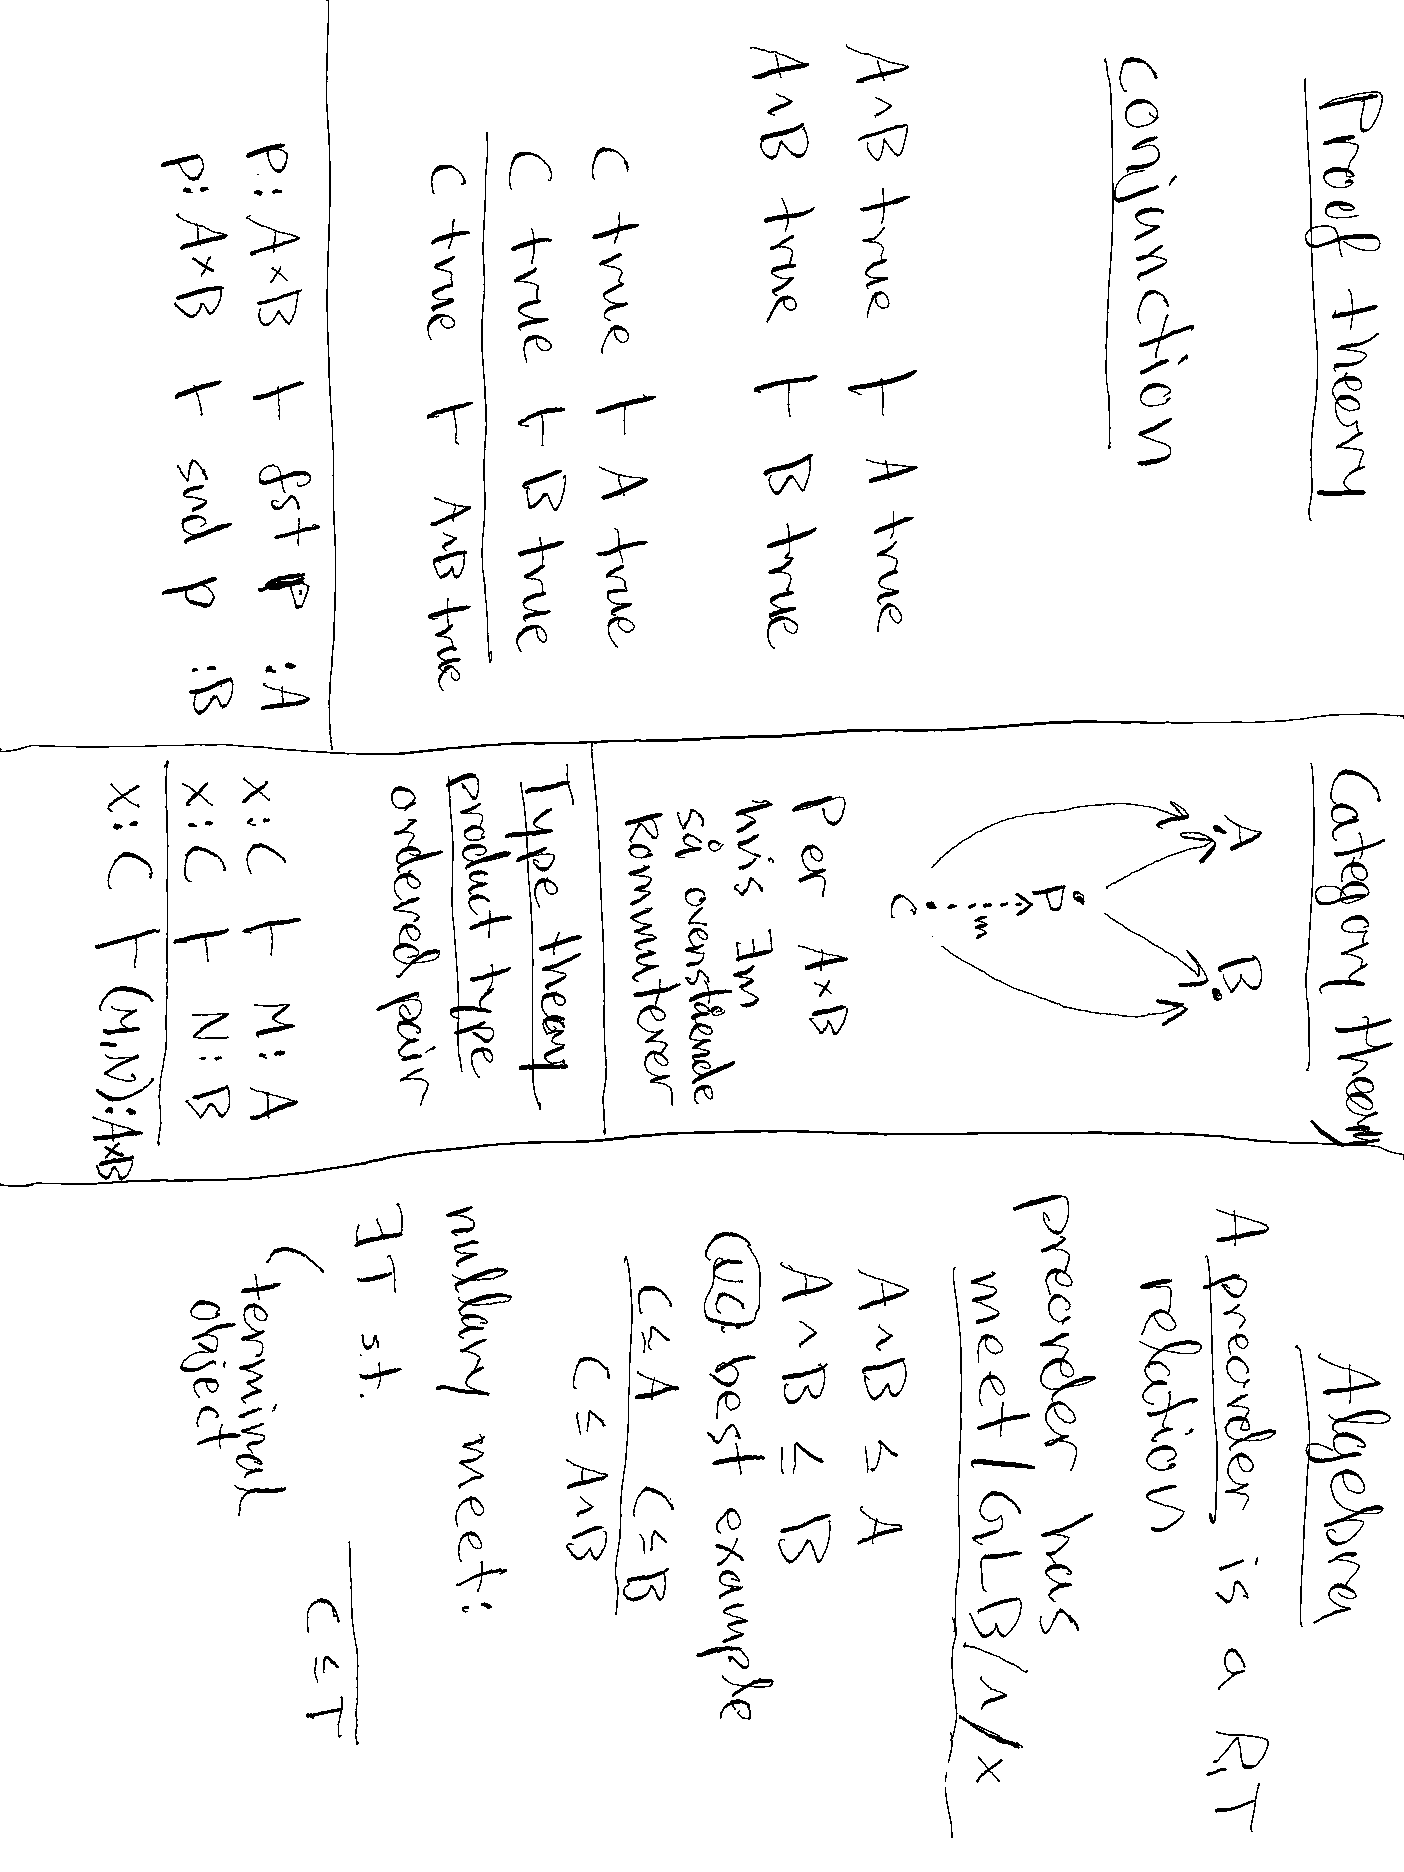 Proof theory
conjunction
A∧B true ⊢ A true
A∧B true ⊢ B true
C true ⊢ A true
C true ⊢ B true
C true ⊢ A∧B true
p: A×B ⊢ fst p : A
p: A×B ⊢ snd p : B
Category theory
A B
P
m
C
P er A×B
hvis ∃m
så ovenstående
kommuterer
Type theory
product type
ordered pair
x: C ⊢ M: A
x: C ⊢ N: B
x: C ⊢ (M,N): A×B
Algebra
A preorder is a R,T
relation
preorder has
meet/GLB/∧/×
A∧B ≤ A
A∧B ≤ B
(UC) best example
C≤A C≤B
C ≤ A∧B
nullary meet:
∃T st.
C ≤ T
(terminal
object